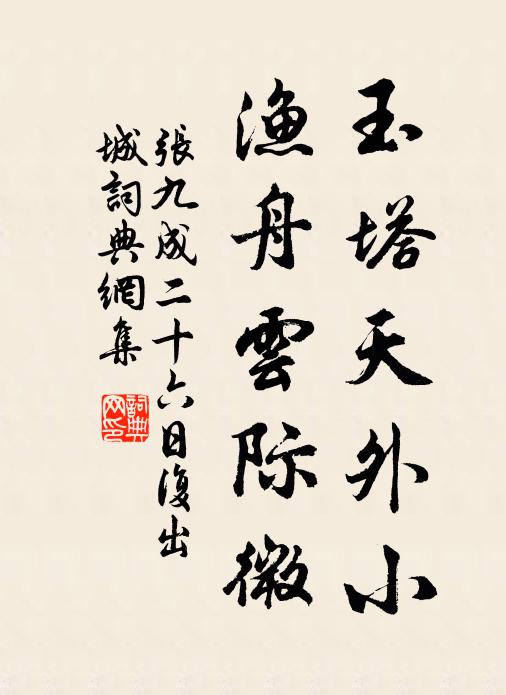 玉塔天外小
渔舟雲际微
張九成二十六日復出
城詞典網集
詞典网印